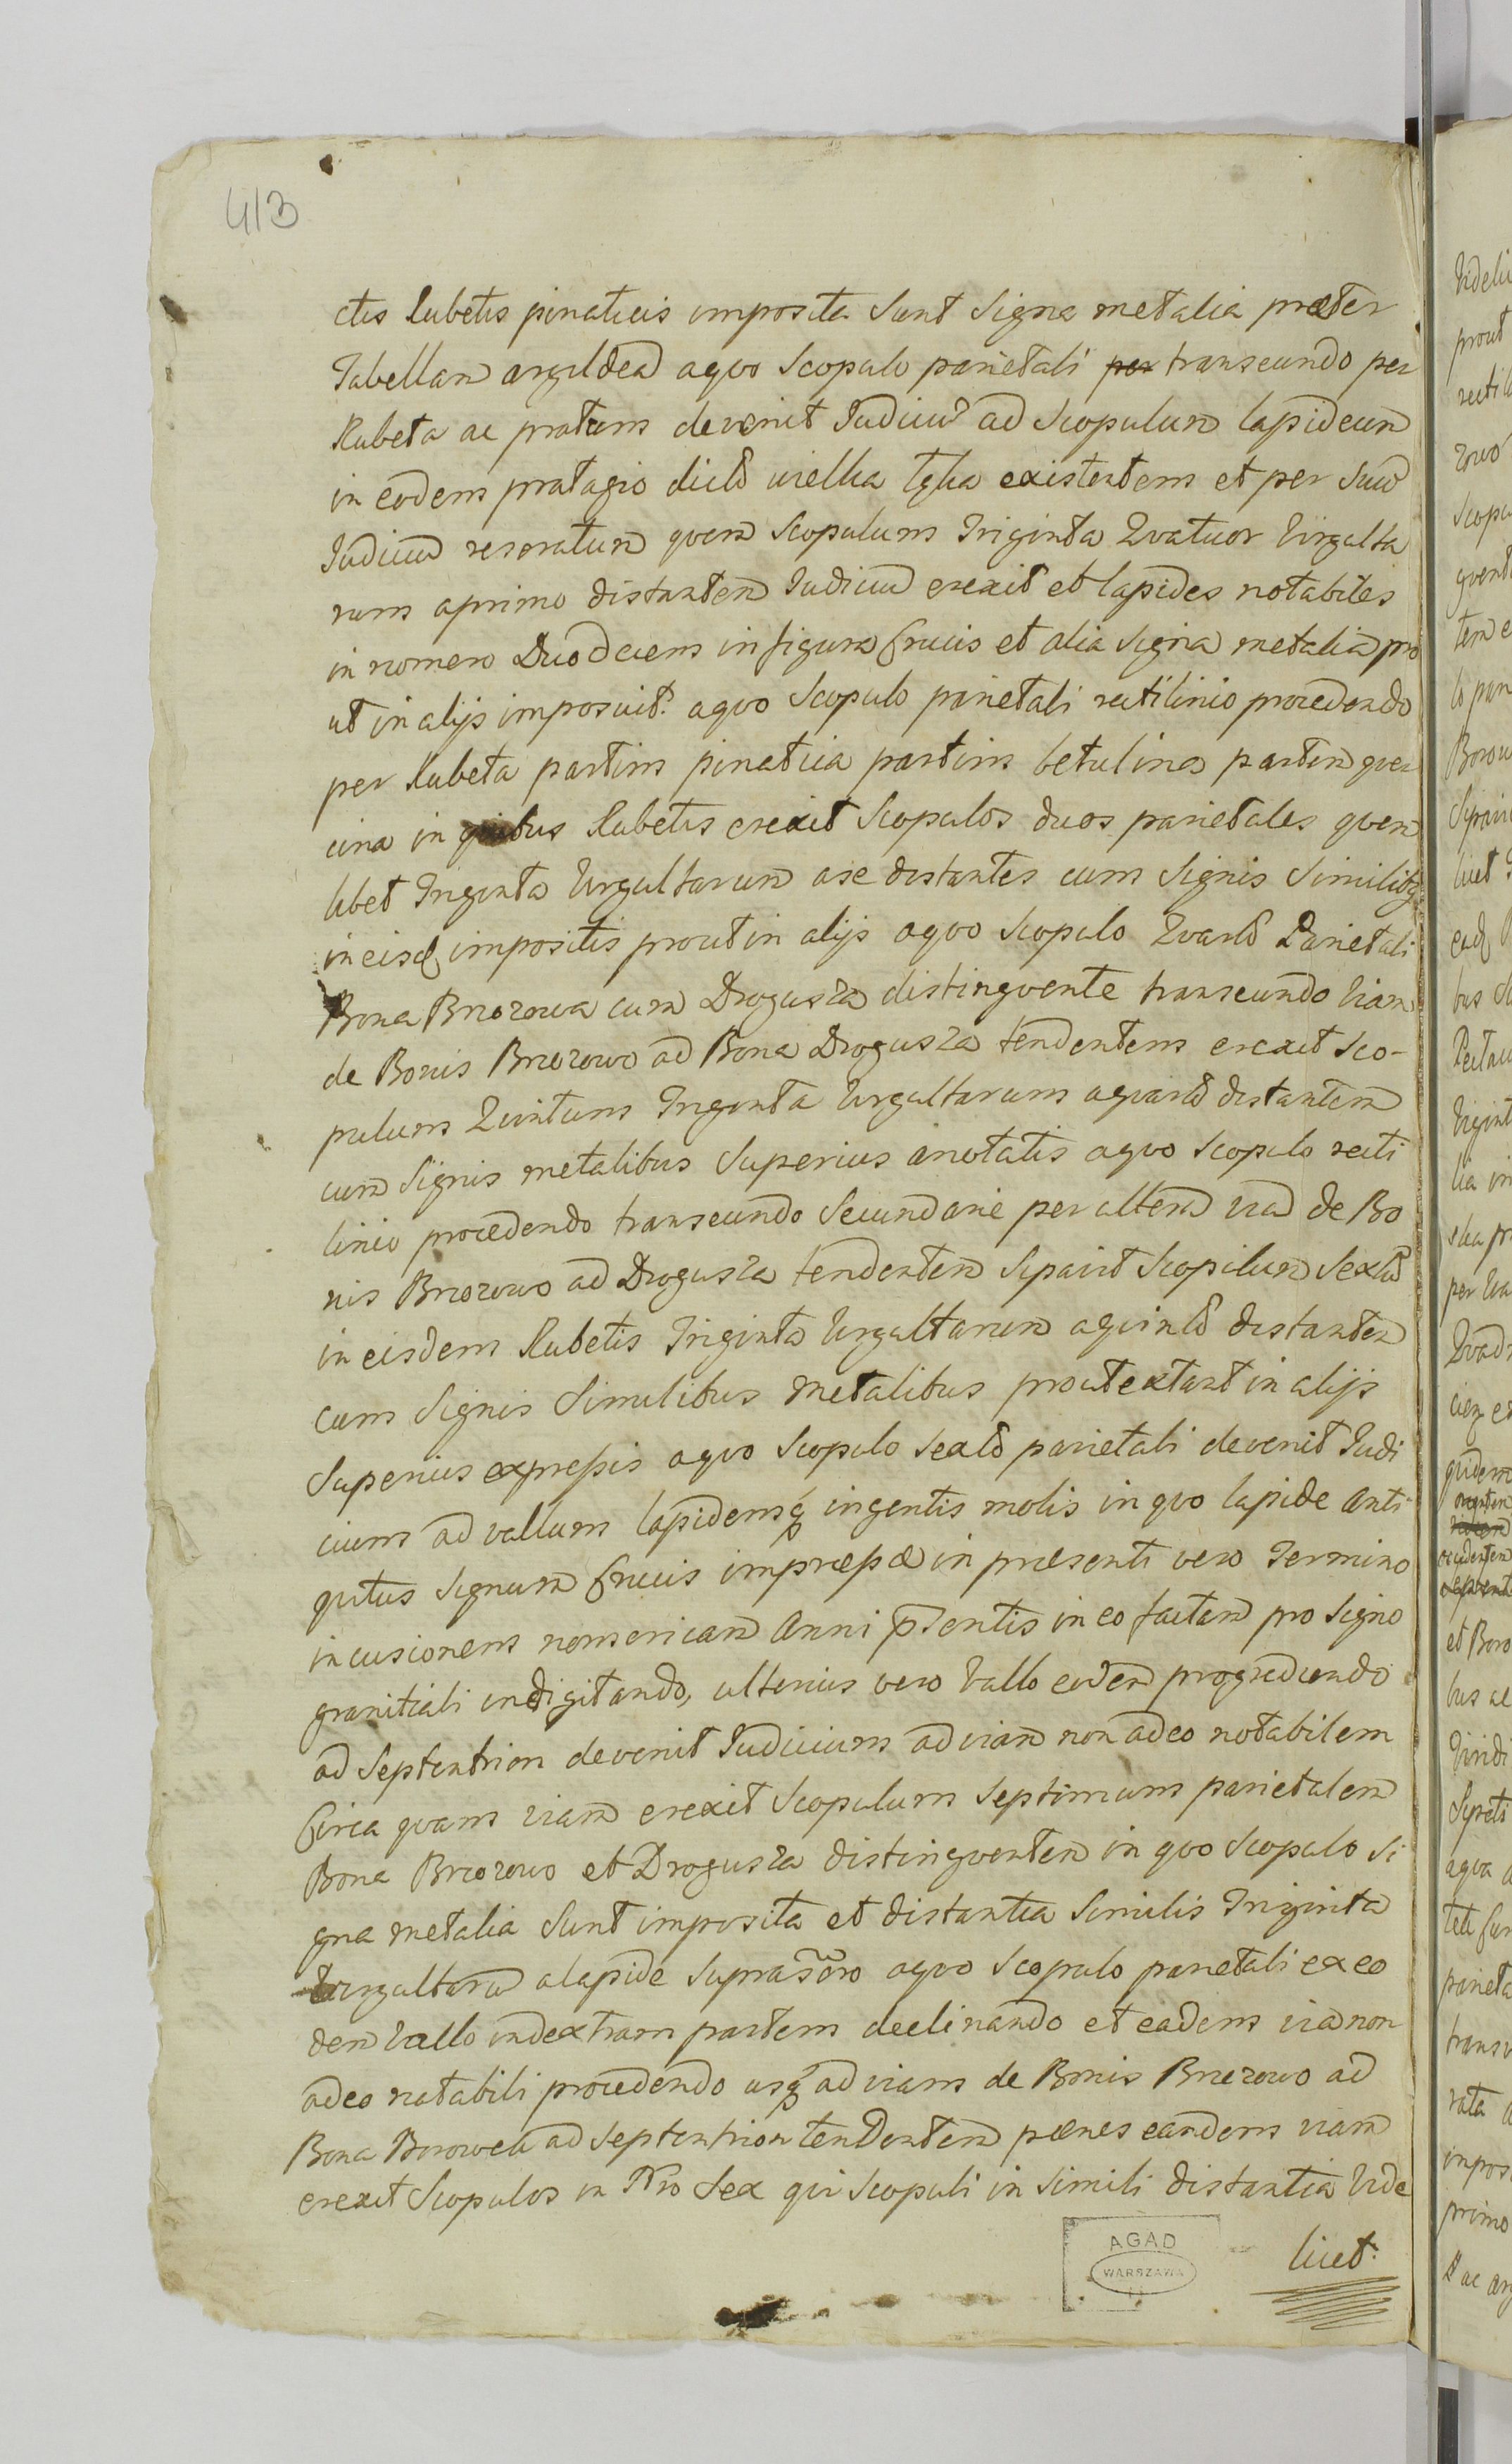 413
ctis Rubetis pinaticis imposita sunt Signa metalia præter
Tabellam argildeã aquo Scopulo parietali per transeundo per
Rubeta ac pratum devenit Judiciũ ad Scopulum lapideum
in eodem pratagio dicto wielka existentem et per suũ
Judiciũ resoratum quem Scopulum Triginta Qvatuor Virgulta
rum aprimo distantem Judiciũ erexit et lapides notabiles
in nomero Duodeciem in figura Crucis et alia Signa metalia pro
ut in alijs imposuit. aquo Scopulo parietali rectilinio procedendo
per Rubeta partim pinaticia partim betulina partim qver
cina in quibus Rubetis erexit Scopulos duos parietales qvem
libet Triginta Virgultarum ase distantes cum Signis Similibq
in eisd impositis prout in alijs aquo Scopulo Qvarto Parietali
Bona Brzozowa cum Drogusza distingvente transeundo Viam
de Bonis Brzozowo ad Bona Drogusza tendentem erexit Sco-
pulum Quintum Triginta Virgultarum aquarto distantem
cum Signis metalibus Superius anotatis aquo Scopulo recti
linio procedendo transeundo Secundarie per alterã viã de Bo
nis Brzozowo ad Drogusza tendentem Sipavit Scopulum Sextũ
in eisdem Rubetis Triginta Virgultarum aquinto distantem
cum Signis Similibus Metalibus prout extant in alijs
Superius expressis aquo Scopulo Sexto parietali devenit Judi
cium ad vallum lapidemq ingentis molis in quo lapide anti
qvitus Signum Crucis impressæ in præsenti vero Termino
incusionem nomericam Anni pñtentis in eo factam pro Signo
granitiali indigitando, ulterius vero Vallo eodem progrediendo
ad Septentrion devenit Judicium ad viam non adeo notabilem
Circa qvam viam erexit Scopulum Septimum parietalem
Bona Brzozowo et Drogusza distingventem in quo Scopulo Si
gna metalia Sunt imposita et distantia Similis Triginta
Virgultarũ alapide aquo Scopulo parietali ex eo
dem Vallo indextram partem declinando et eadem via non
adeo notabili procedendo usq ad viam de Bonis Brzezowo ad
Bona ad Septentrion tendentem pænes eandem viam
erexit Scopulos in Nro Sex qui Scopuli in Simili distantia Vide
licet.
AGAD
WARSZAWA